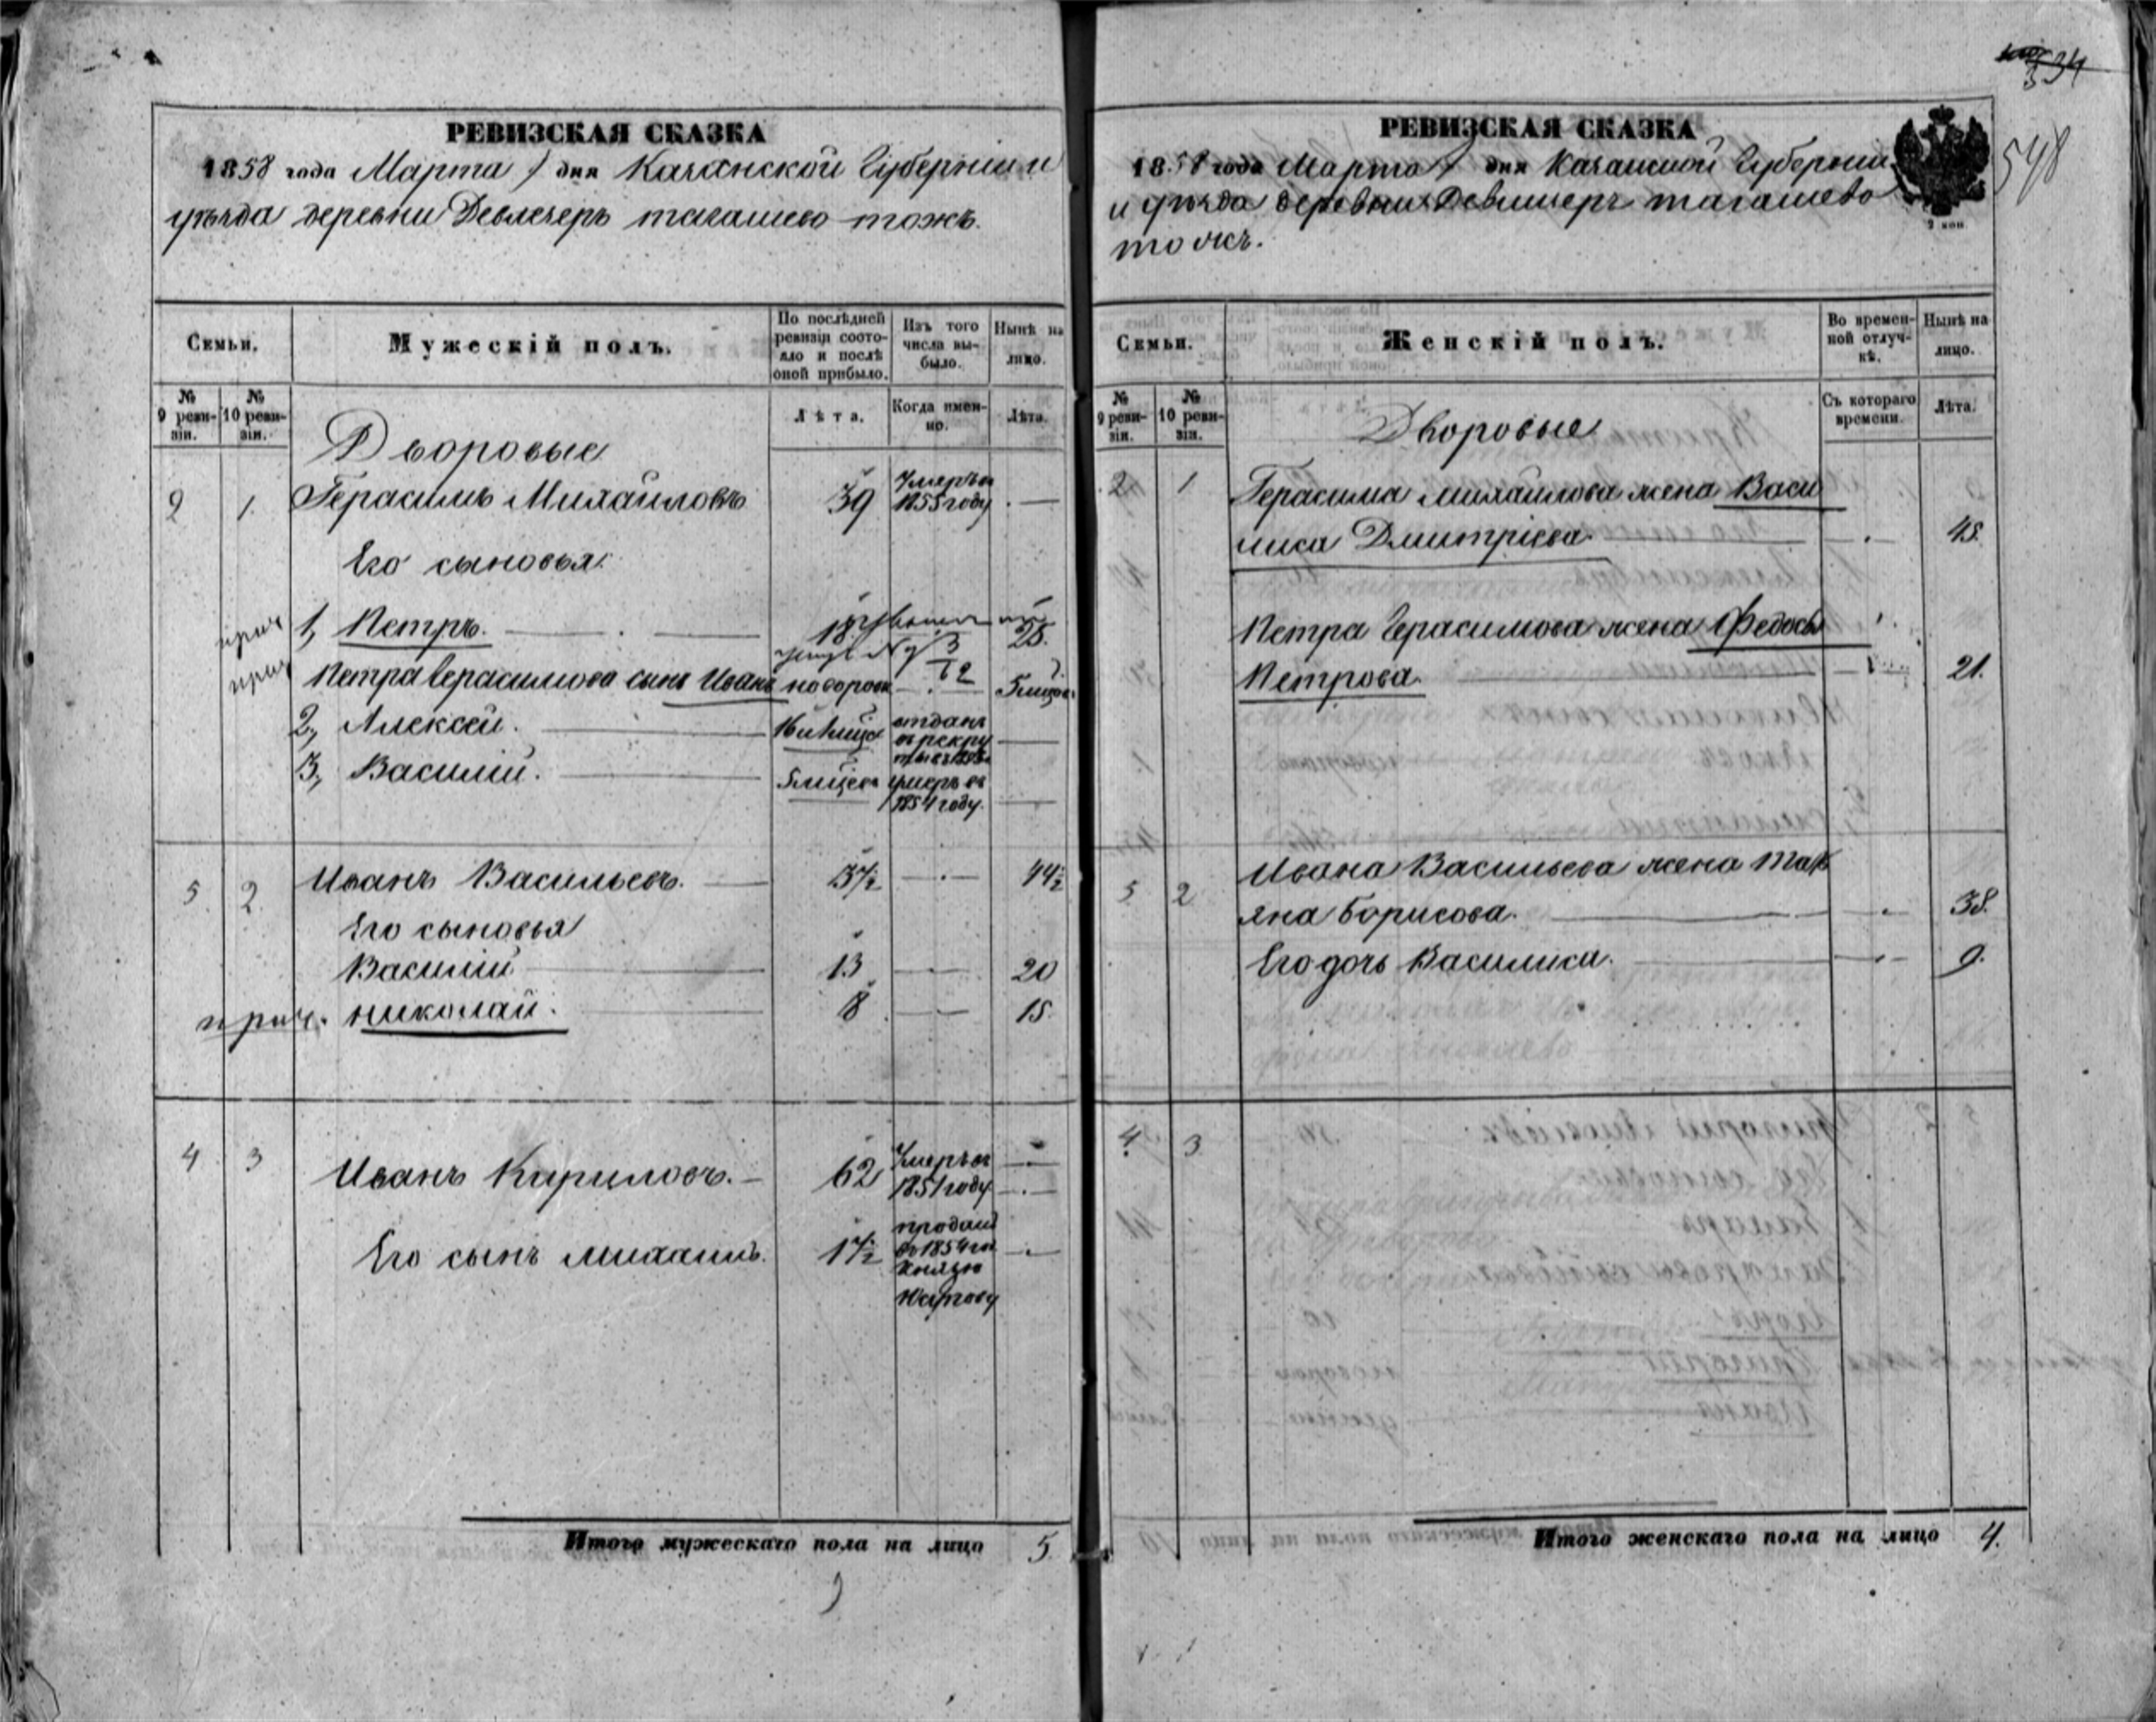 534
548
РЕВИЗСКАЯ СКАЗКА
1858 года Марта 1 дня Казанской Губерніи и
уѣзда деревни Девлезерь тагашево тожъ.
Семьи.
Мужескій полъ.
По послѣдней ревизіи состояло и послѣ оной прибыло.
Изъ того числа выбыло.
Нынѣ на лицо.
№ 9 ревизіи.
№ 10 ревизіи.
Лѣта.
Когда именно.
Лѣта.
Дворовые
2 1. Герасимъ Михайловъ 39 Умеръ въ 1855 году —
Его сыновья:
прич 1, Петръ. — 18 25.
прич Петра Герасимова сынъ Иванъ новорож — 5 мцов
2, Алексей. — отданъ въ рекруты —
3, Василій. — 5 мцевъ умеръ въ 1854 году. —
5. 2. Иванъ Васильевъ. — 37½ — 44½
Его сыновья
Василій — 13 — 20
прич. николай. — 8 — 15.
4 3 Иванъ Кириловъ. — 62 Умеръ въ 1851 году —
Его сынъ михаилъ. 17½ проданъ въ 1854 го Князю Юсупову —
Итого мужескаго пола на лицо 5.
РЕВИЗСКАЯ СКАЗКА
1858 года Марта 1 дня Казанской Губерніи
и уѣзда деревни Девлезерь тагашево
тожъ.
Семьи.
Женскій полъ.
Во временной отлучкѣ.
Нынѣ на лицо.
№ 9 ревизіи.
№ 10 ревизіи.
Съ котораго времени.
Лѣта.
Дворовые
2 1 Герасима михайлова жена Васи
лиса Дмитріева. — 45.
Петра Герасимова жена Федосья
Петрова. — 21.
5 2 Ивана Васильева жена Тать
яна Борисова. — 38.
Его дочь Василиса. — 9.
4. 3
Итого женскаго пола на лицо 4.